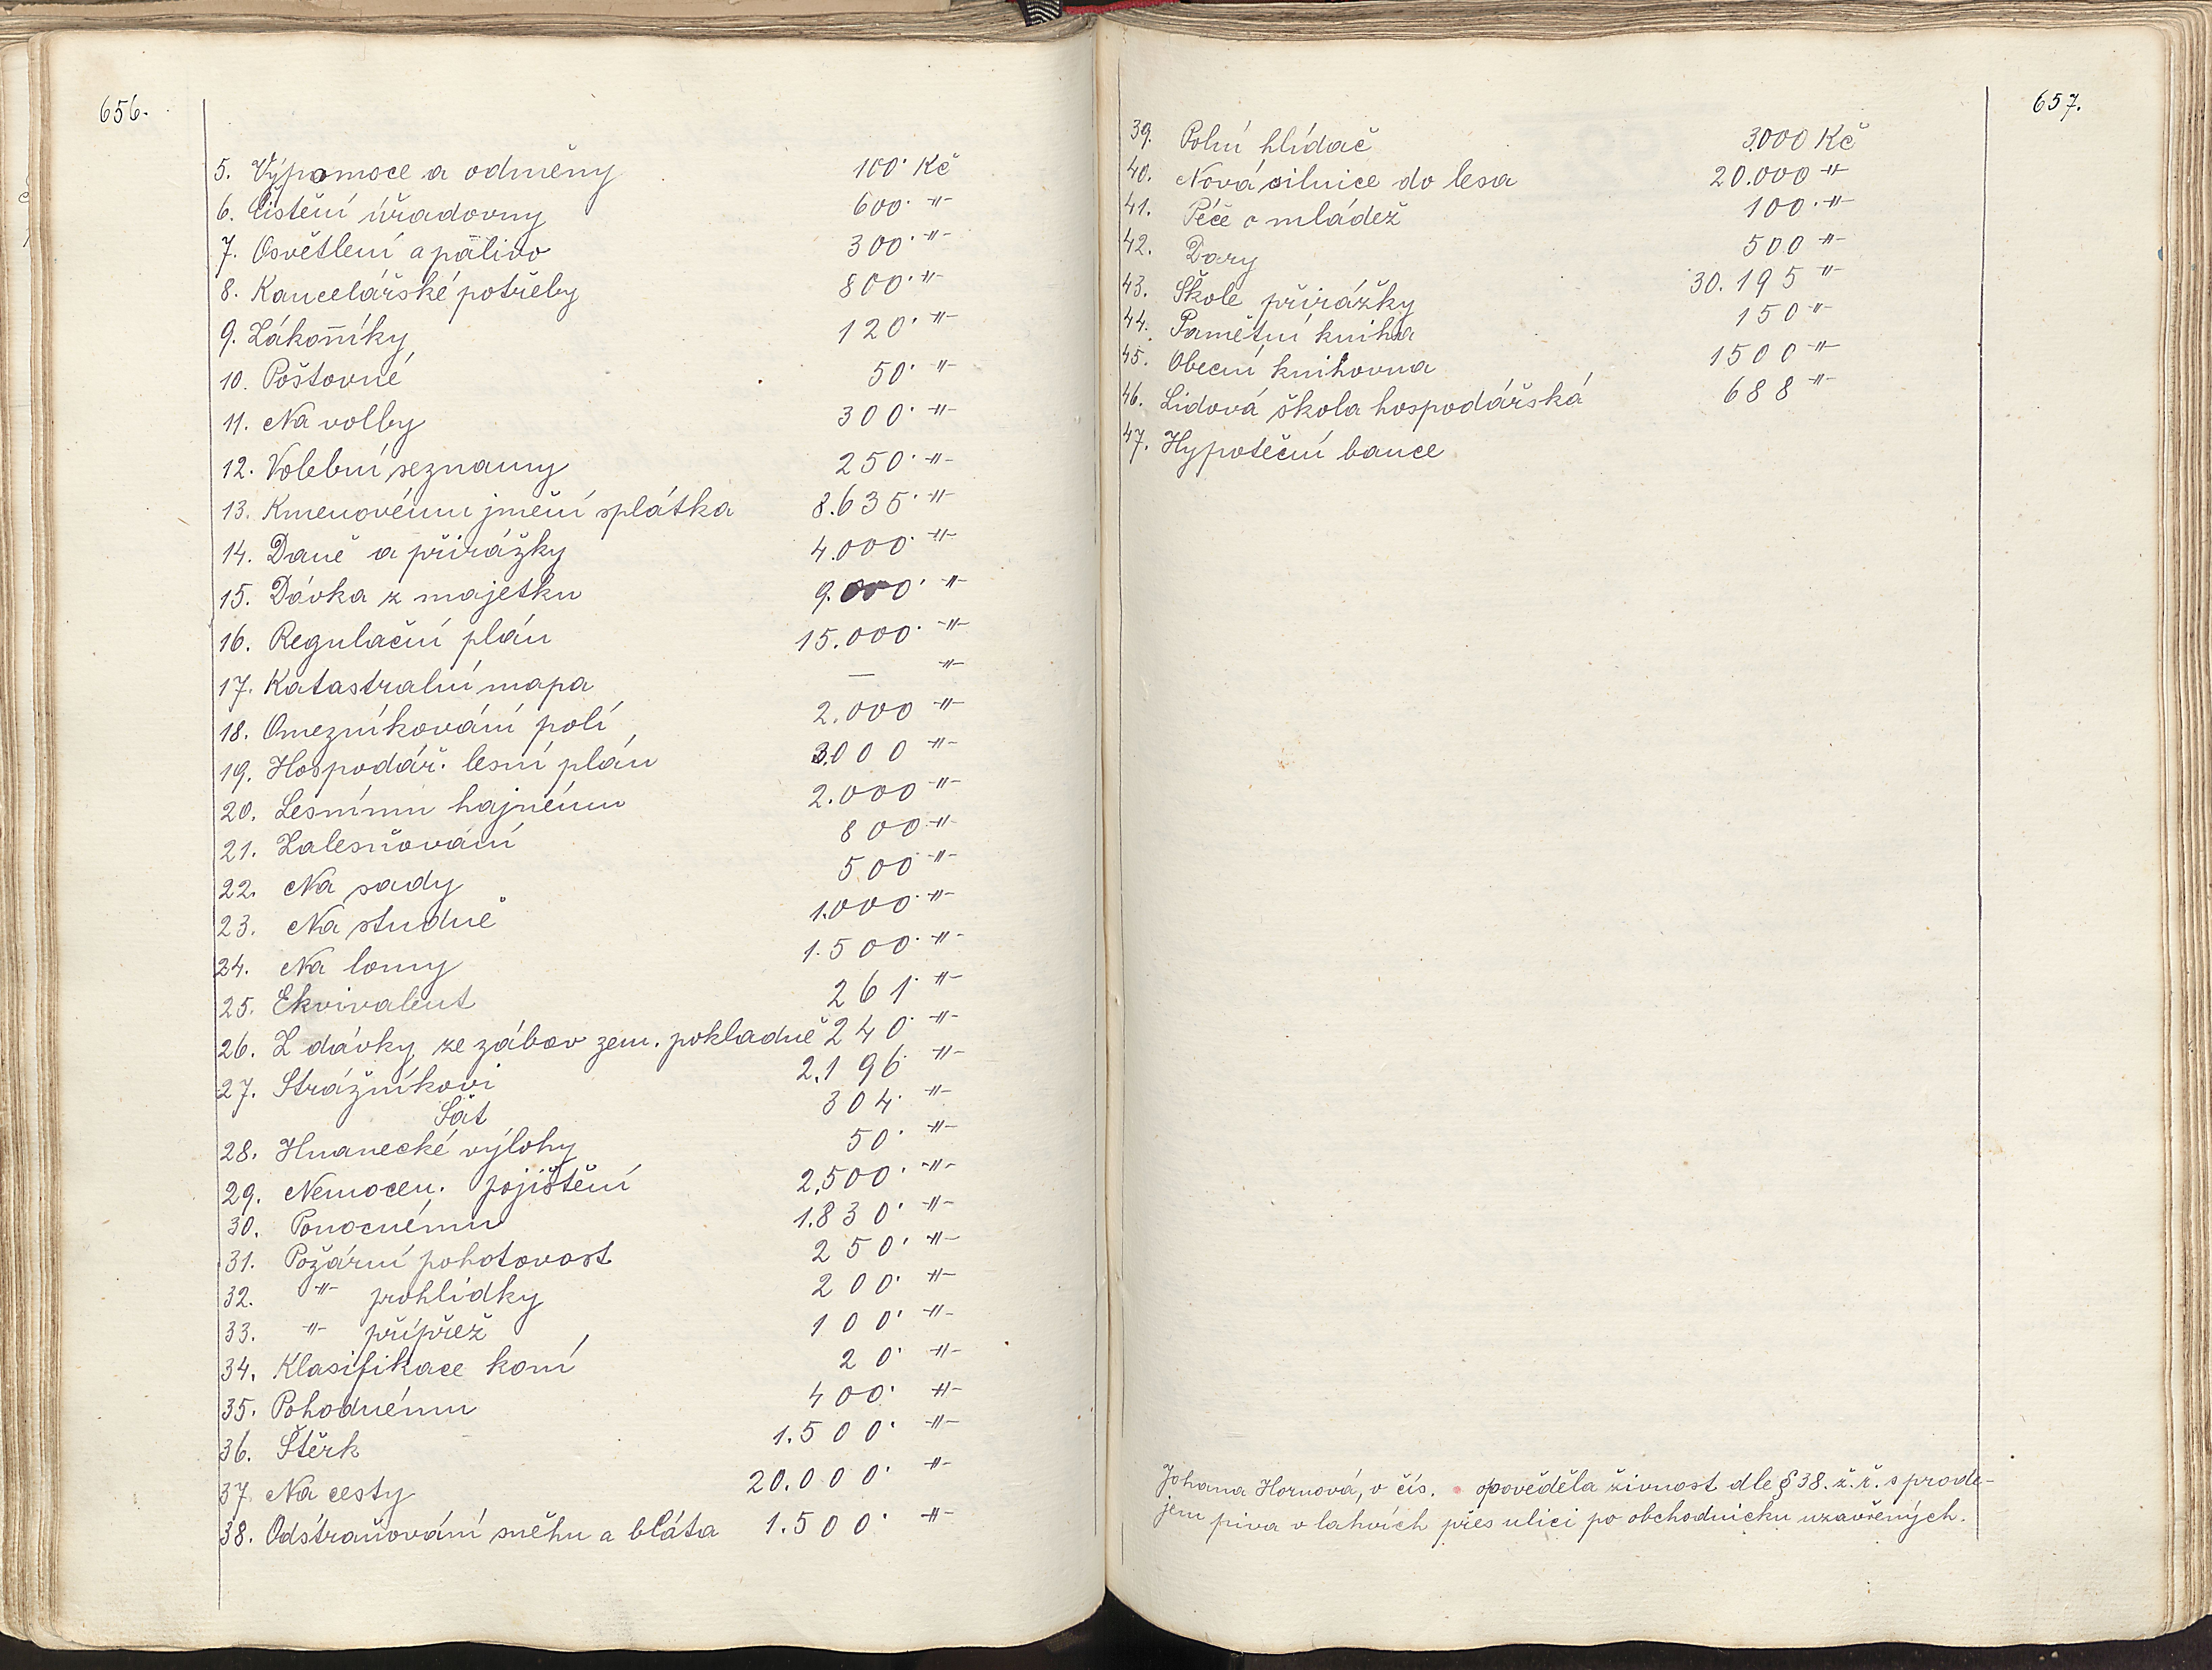 656.
5. Výpomoce a odměny 100· Kč
6. Čistění úřadovny 600· -"-
7. Osvětlení a palivo 300· -"-
8. Kancelářské potřeby 800· -"-
9. Zákonníky 120· -"-
10. Poštovné 50· -"-
11. Na volby 300· -"-
12. Volební seznamy 250· -"-
13. Kmenovému jmění splátka 8.635· -"-
14. Daně a přirážky 4.000· -"-
15. Dávka z majetku 9.000· -"-
16. Regulační plán 15.000· -"-
17. Katastralní mapa — -"-
18. Omezníkování polí 2.000 -"-
19. Hospodář. lesní plán 3.000 -"-
20. Lesnímu hajnému 2.000 -"-
21. Zalesňování 800 -"-
22. Na sady 500 -"-
23. Na studně 1.000· -"-
24. Na lomy 1.500· -"-
25. Ekvivalent 261· -"-
26. Z dávky ze zábav zem. pokladně 240· -"-
27. Strážníkovi 2.196 -"-
Šat 304· -"-
28. Hnanecké výlohy 50· -"-
29. Nemocen. pojištění 2.500· -"-
30. Ponocnému 1.830· -"-
31. Požární pohotovost 250· -"-
32. -"- prohlídky 200· -"-
33. -"- přípřež 100· -"-
34. Klasifikace koní 20· -"-
35. Pohodnému 400· -"-
36. Štěrk 1.500· -"-
37. Na cesty 20.000· -"-
38. Odstraňování sněhu a bláta 1.500· -"-
657.
39. Polní hlídač 3.000 Kč
40. Nová silnice do lesa 20.000 -"-
41. Péče o mládež 100· -"-
42. Dary 500 -"-
43. Škole přirážky 30.195 -"-
44. Pamětní kniha 150 -"-
45. Obecní knihovna 1500 -"-
46. Lidová škola hospodářská 688 -"-
47. Hypoteční bance
Johana Hornová, v čís. opověděla živnost dle § 38. ž. ř. s prode-
jem piva v lahvích přes ulici po obchodnicku uzavřených.